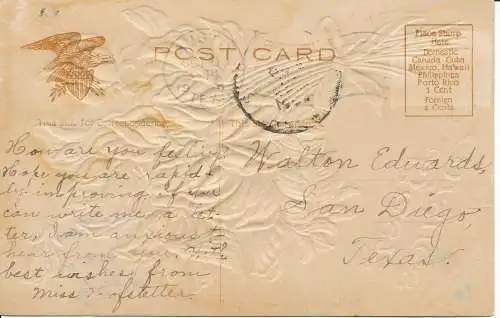 POST CARD
Place Stamp
Here
Domestic
Canada, Cuba
Mexico, Hawaii
Philippines
Porto Rico
1 Cent
Foreign
2 Cents
How are you feeling
Hope you are rapid-
ly improving. If you
can write me a let-
ter, I am anxious to
hear from you. With
best wishes from
Miss Hofstetter.
Walton Edwards,
San Diego,
Texas.